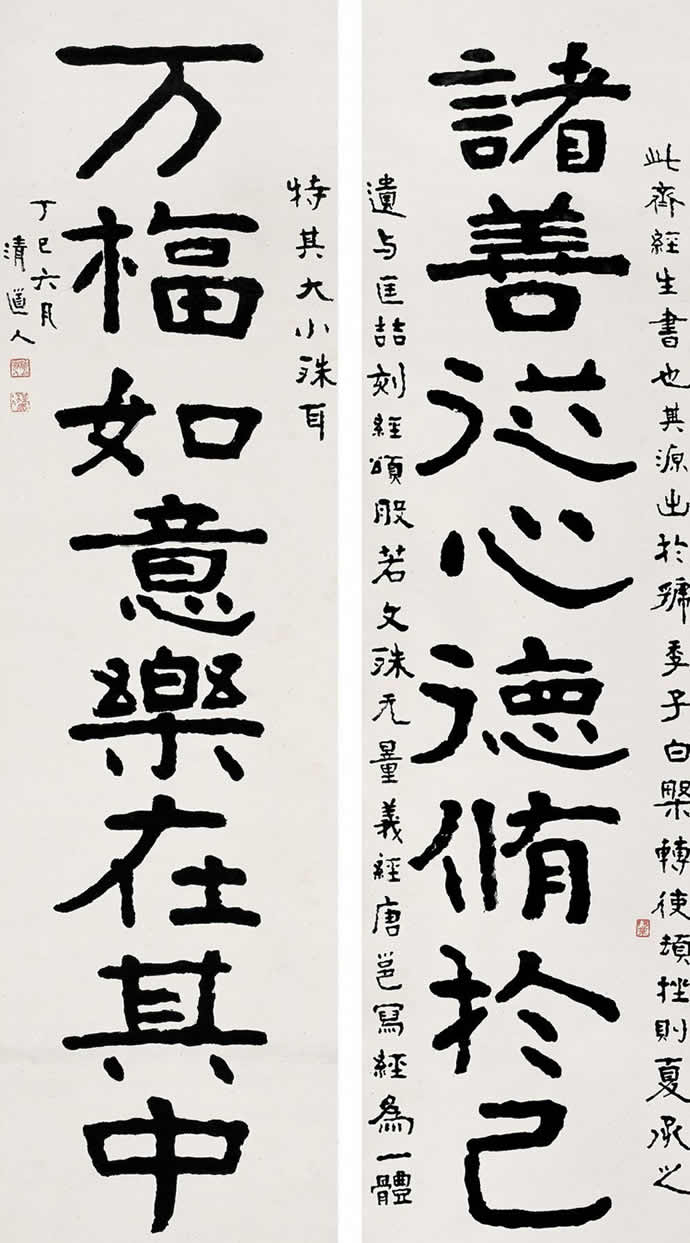 此齊經生書也其源出於虢季子白槃轉使頓挫則夏承之
諸善從心德脩於己
遺与匡喆刻經頌般若文殊无量義經唐邕寫經為一體
特其大小殊耳
万福如意樂在其中
丁巳六月
清道人